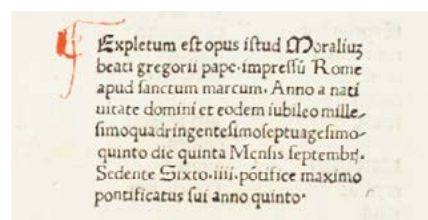 Expletum eſt opus iſtud Moraliuʒ
beati gregorii pape·impreſſū Rome
apud ſanctum marcum· Anno a nati
uitate domini et eodem iubileo mille⸗
ſimoquadringenteſimoſeptuageſimo⸗
quinto die quinta Menſis ſeptembrꝭ·
Sedente Sixto·iiii·pōtifice maximo
pontificatus ſui anno quinto·